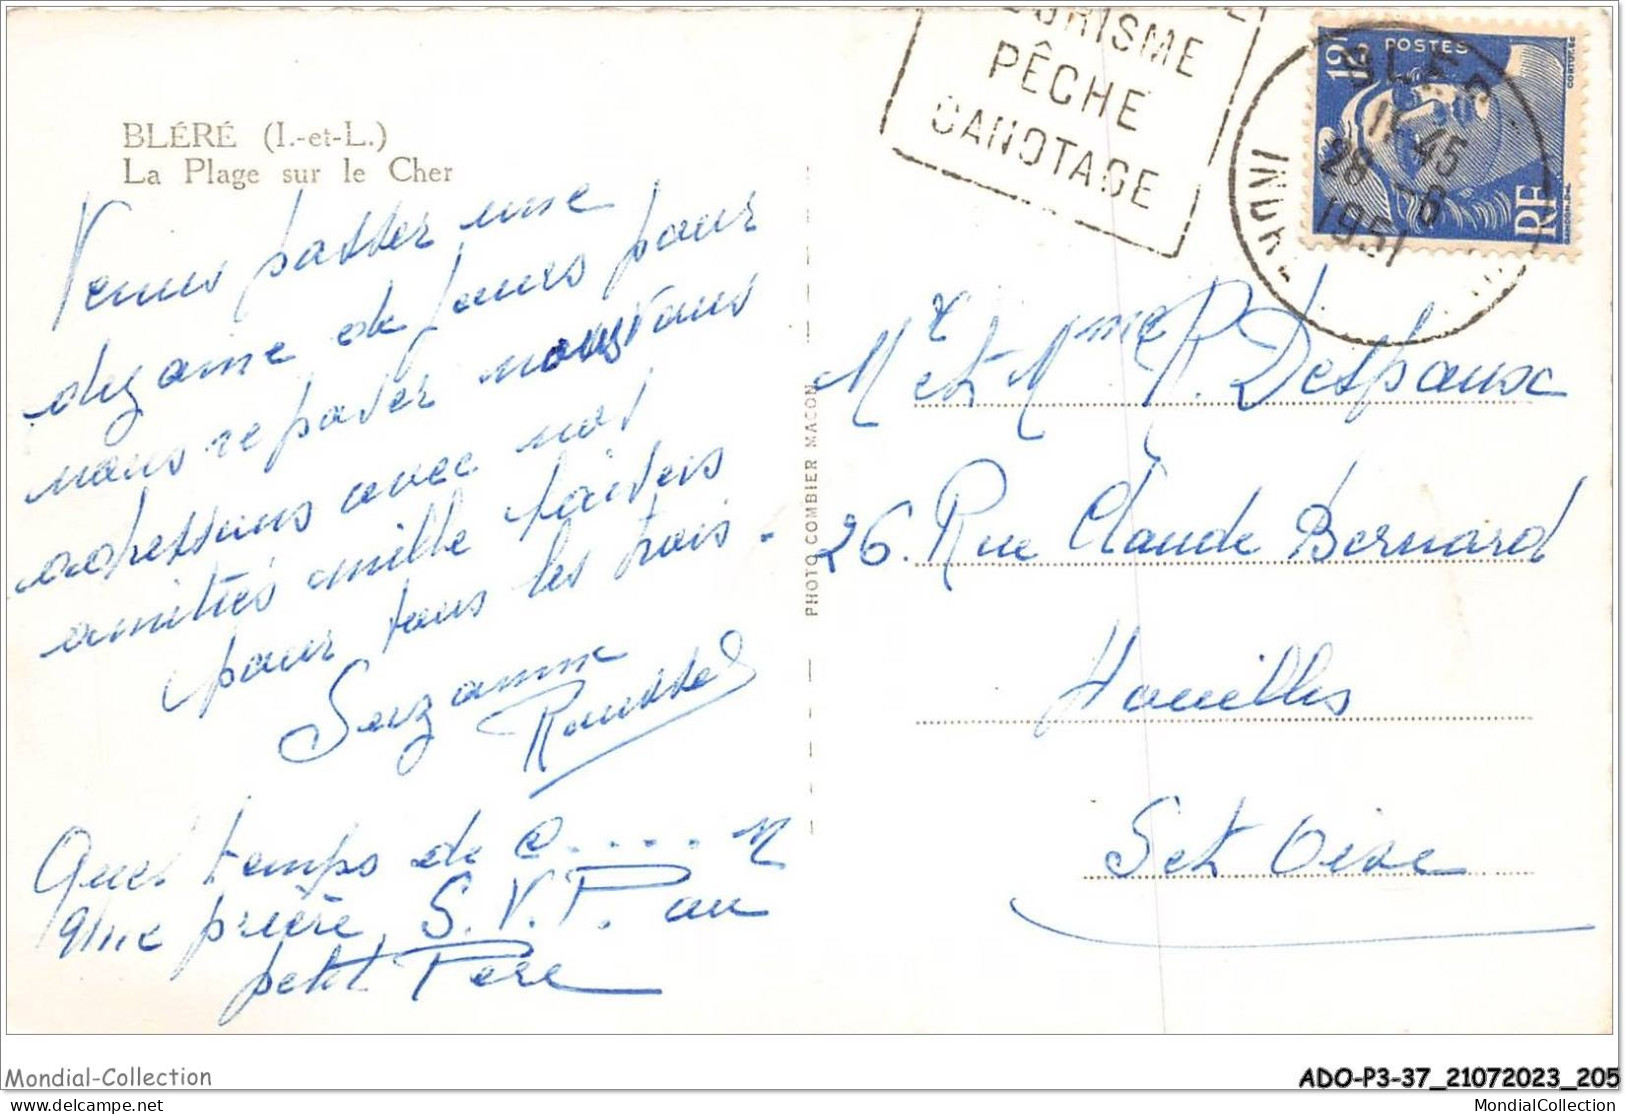 BLÉRÉ (I.-et-L.)
La Plage sur le Cher
Venus passer une
dizaine de jours pour
nous reposer nous vous
adressons avec nos
amitiés mille baisers
pour tous les trois.
Suzanne
Roussel
Quel temps de c.....n
Une prière S.V.P. au
petit Père
PHOTO COMBIER MACON
TOURISME
PÊCHE
CANOTAGE
BLÉRÉ
17 45
28 -6
1951
INDRE
12F POSTES
RF
Mr et Mme P. Despaux
26. Rue Claude Bernard
Houilles
S et Oise
Mondial-Collection
ADO-P3-37_21072023_205
www.mondialcollection.net
MondialCollection